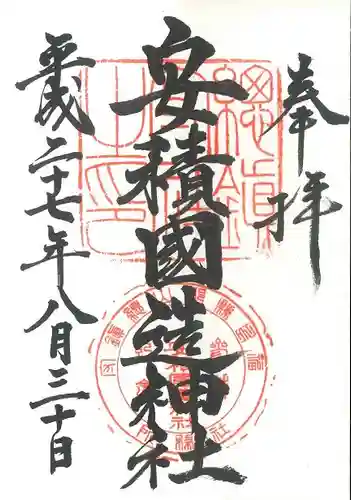 奉拝
安積國造神社
平成二十七年八月三十日